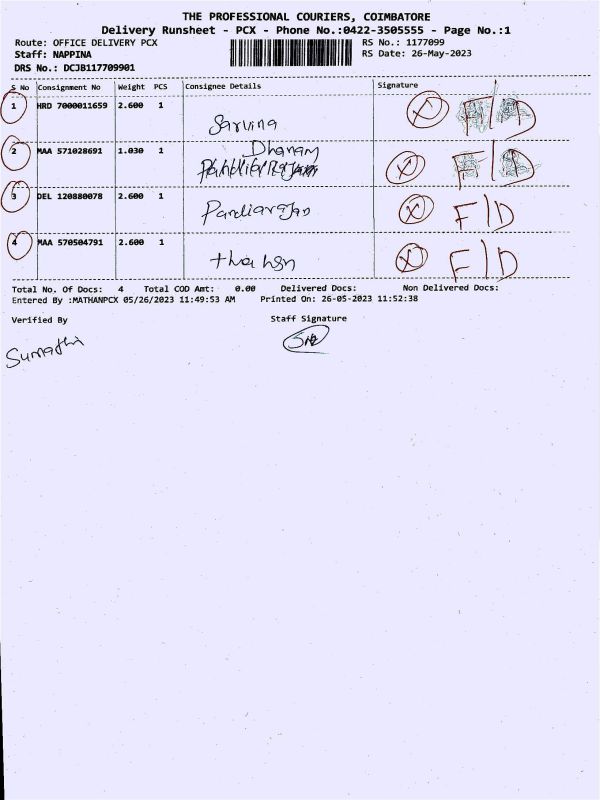 THE PROFESSIONAL COURIERS, COIMBATORE
Delivery Runsheet - PCX - Phone No.:0422-3505555 - Page No.:1
Route: OFFICE DELIVERY PCX RS No.: 1177099
Staff: NAPPINA RS Date: 26-May-2023
DRS No.: DCJB117709901
S No Consignment No Weight PCS Consignee Details Signature
1 HRD 7000011659 2.600 1
Sarvina
2 MAA 571028691 1.030 1 Dhanam
3 DEL 120880078 2.600 1
Pandiarajan F/D
4 MAA 570504791 2.600 1
F/D
Total No. Of Docs: 4 Total COD Amt: 0.00 Delivered Docs: Non Delivered Docs:
Entered By :MATHANPCX 05/26/2023 11:49:53 AM Printed On: 26-05-2023 11:52:38
Verified By Staff Signature
Sumathi